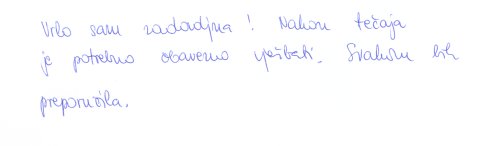 Vrlo sam zadovoljna! Nakon tečaja
je potrebno obavezno vježbati. Svakom bih
preporučila.